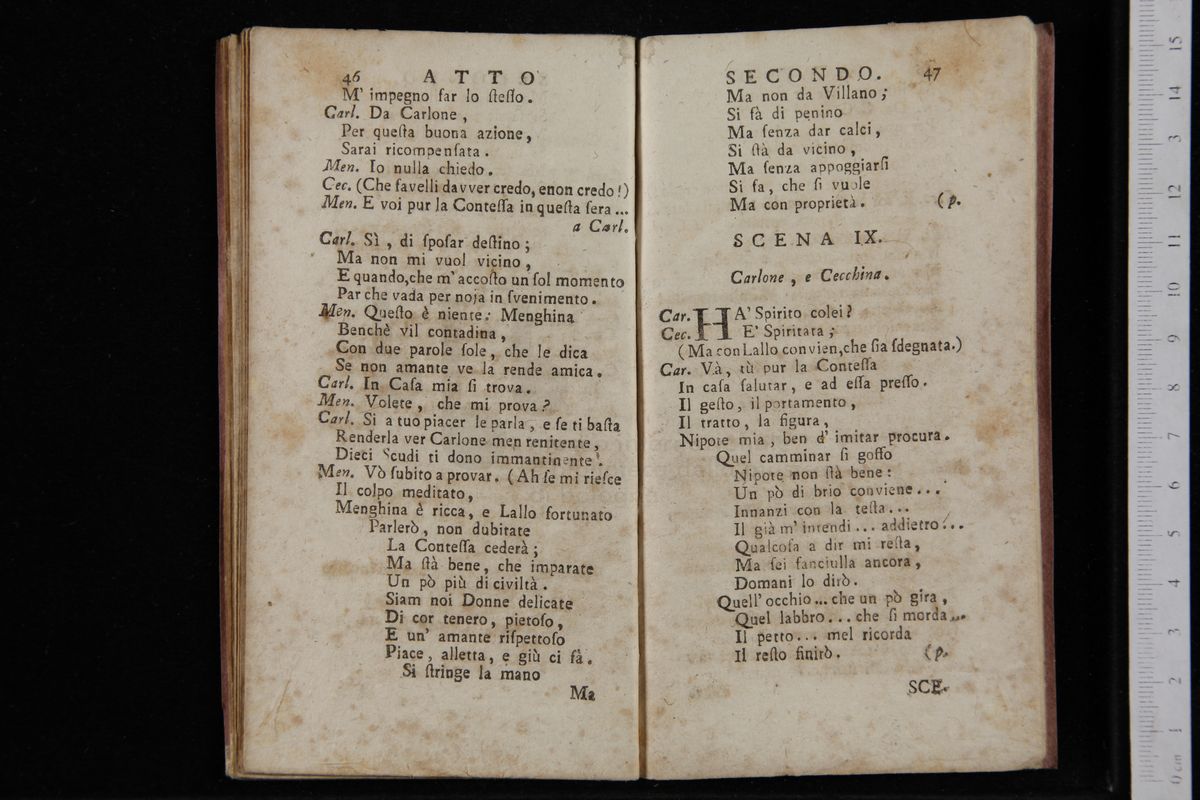 46 ATTO
M' impegno far lo ſteſſo.
Carl. Da Carlone,
Per queſta buona azione,
Sarai ricompenſata.
Men. Io nulla chiedo.
Cec. (Che favelli davver credo, enon credo!)
Men. E voi pur la Conteſſa in queſta ſera...
a Carl.
Carl. Sì, di ſpoſar deſtino;
Ma non mi vuol vicino,
E quando,che m' accoſto un ſol momento
Par che vada per noja in ſvenimento.
Men. Queſto è niente: Menghina
Benchè vil contadina,
Con due parole ſole, che le dica
Se non amante ve la rende amica.
Carl. In Caſa mia ſi trova.
Men. Volete, che mi prova?
Carl. Si a tuo piacer le parla, e ſe ti baſta
Renderla ver Carlone men renitente,
Dieci Scudi ti dono immantinente.
Men. Vò ſubito a provar. (Ah ſe mi rieſce
Il colpo meditato,
Menghina è ricca, e Lallo fortunato
Parlerò, non dubitate
La Conteſſa cederà;
Ma ſtà bene, che imparate
Un pò più di civiltà.
Siam noi Donne delicate
Di cor tenero, pietoſo,
E un' amante riſpettoſo
Piace, alletta, e giù ci fà.
Si ſtringe la mano
Ma
SECONDO. 47
Ma non da Villano;
Si fà di penino
Ma ſenza dar calci,
Si ſtà da vicino,
Ma ſenza appoggiarſi
Si fa, che ſi vuole
Ma con proprietà. (p.
SCENA IX.
Carlone, e Cecchina.
Car. HA' Spirito colei?
Cec. E' Spiritata;
(Ma con Lallo convien,che ſia ſdegnata.)
Car. Và, tù pur la Conteſſa
In caſa ſalutar, e ad eſſa preſſo.
Il geſto, il portamento,
Il tratto, la figura,
Nipote mia, ben d' imitar procura.
Quel camminar ſi goffo
Nipote non ſtà bene:
Un pò di brio conviene...
Innanzi con la teſta...
Il già m' intendi... addietro...
Qualcoſa a dir mi reſta,
Ma ſei fanciulla ancora,
Domani lo dirò.
Quell' occhio... che un pò gira,
Quel labbro... che ſi morda...
Il petto... mel ricorda
Il reſto finirò. (p.
SCE.
0 cm 1 2 3 4 5 6 7 8 9 10 11 12 13 14 15